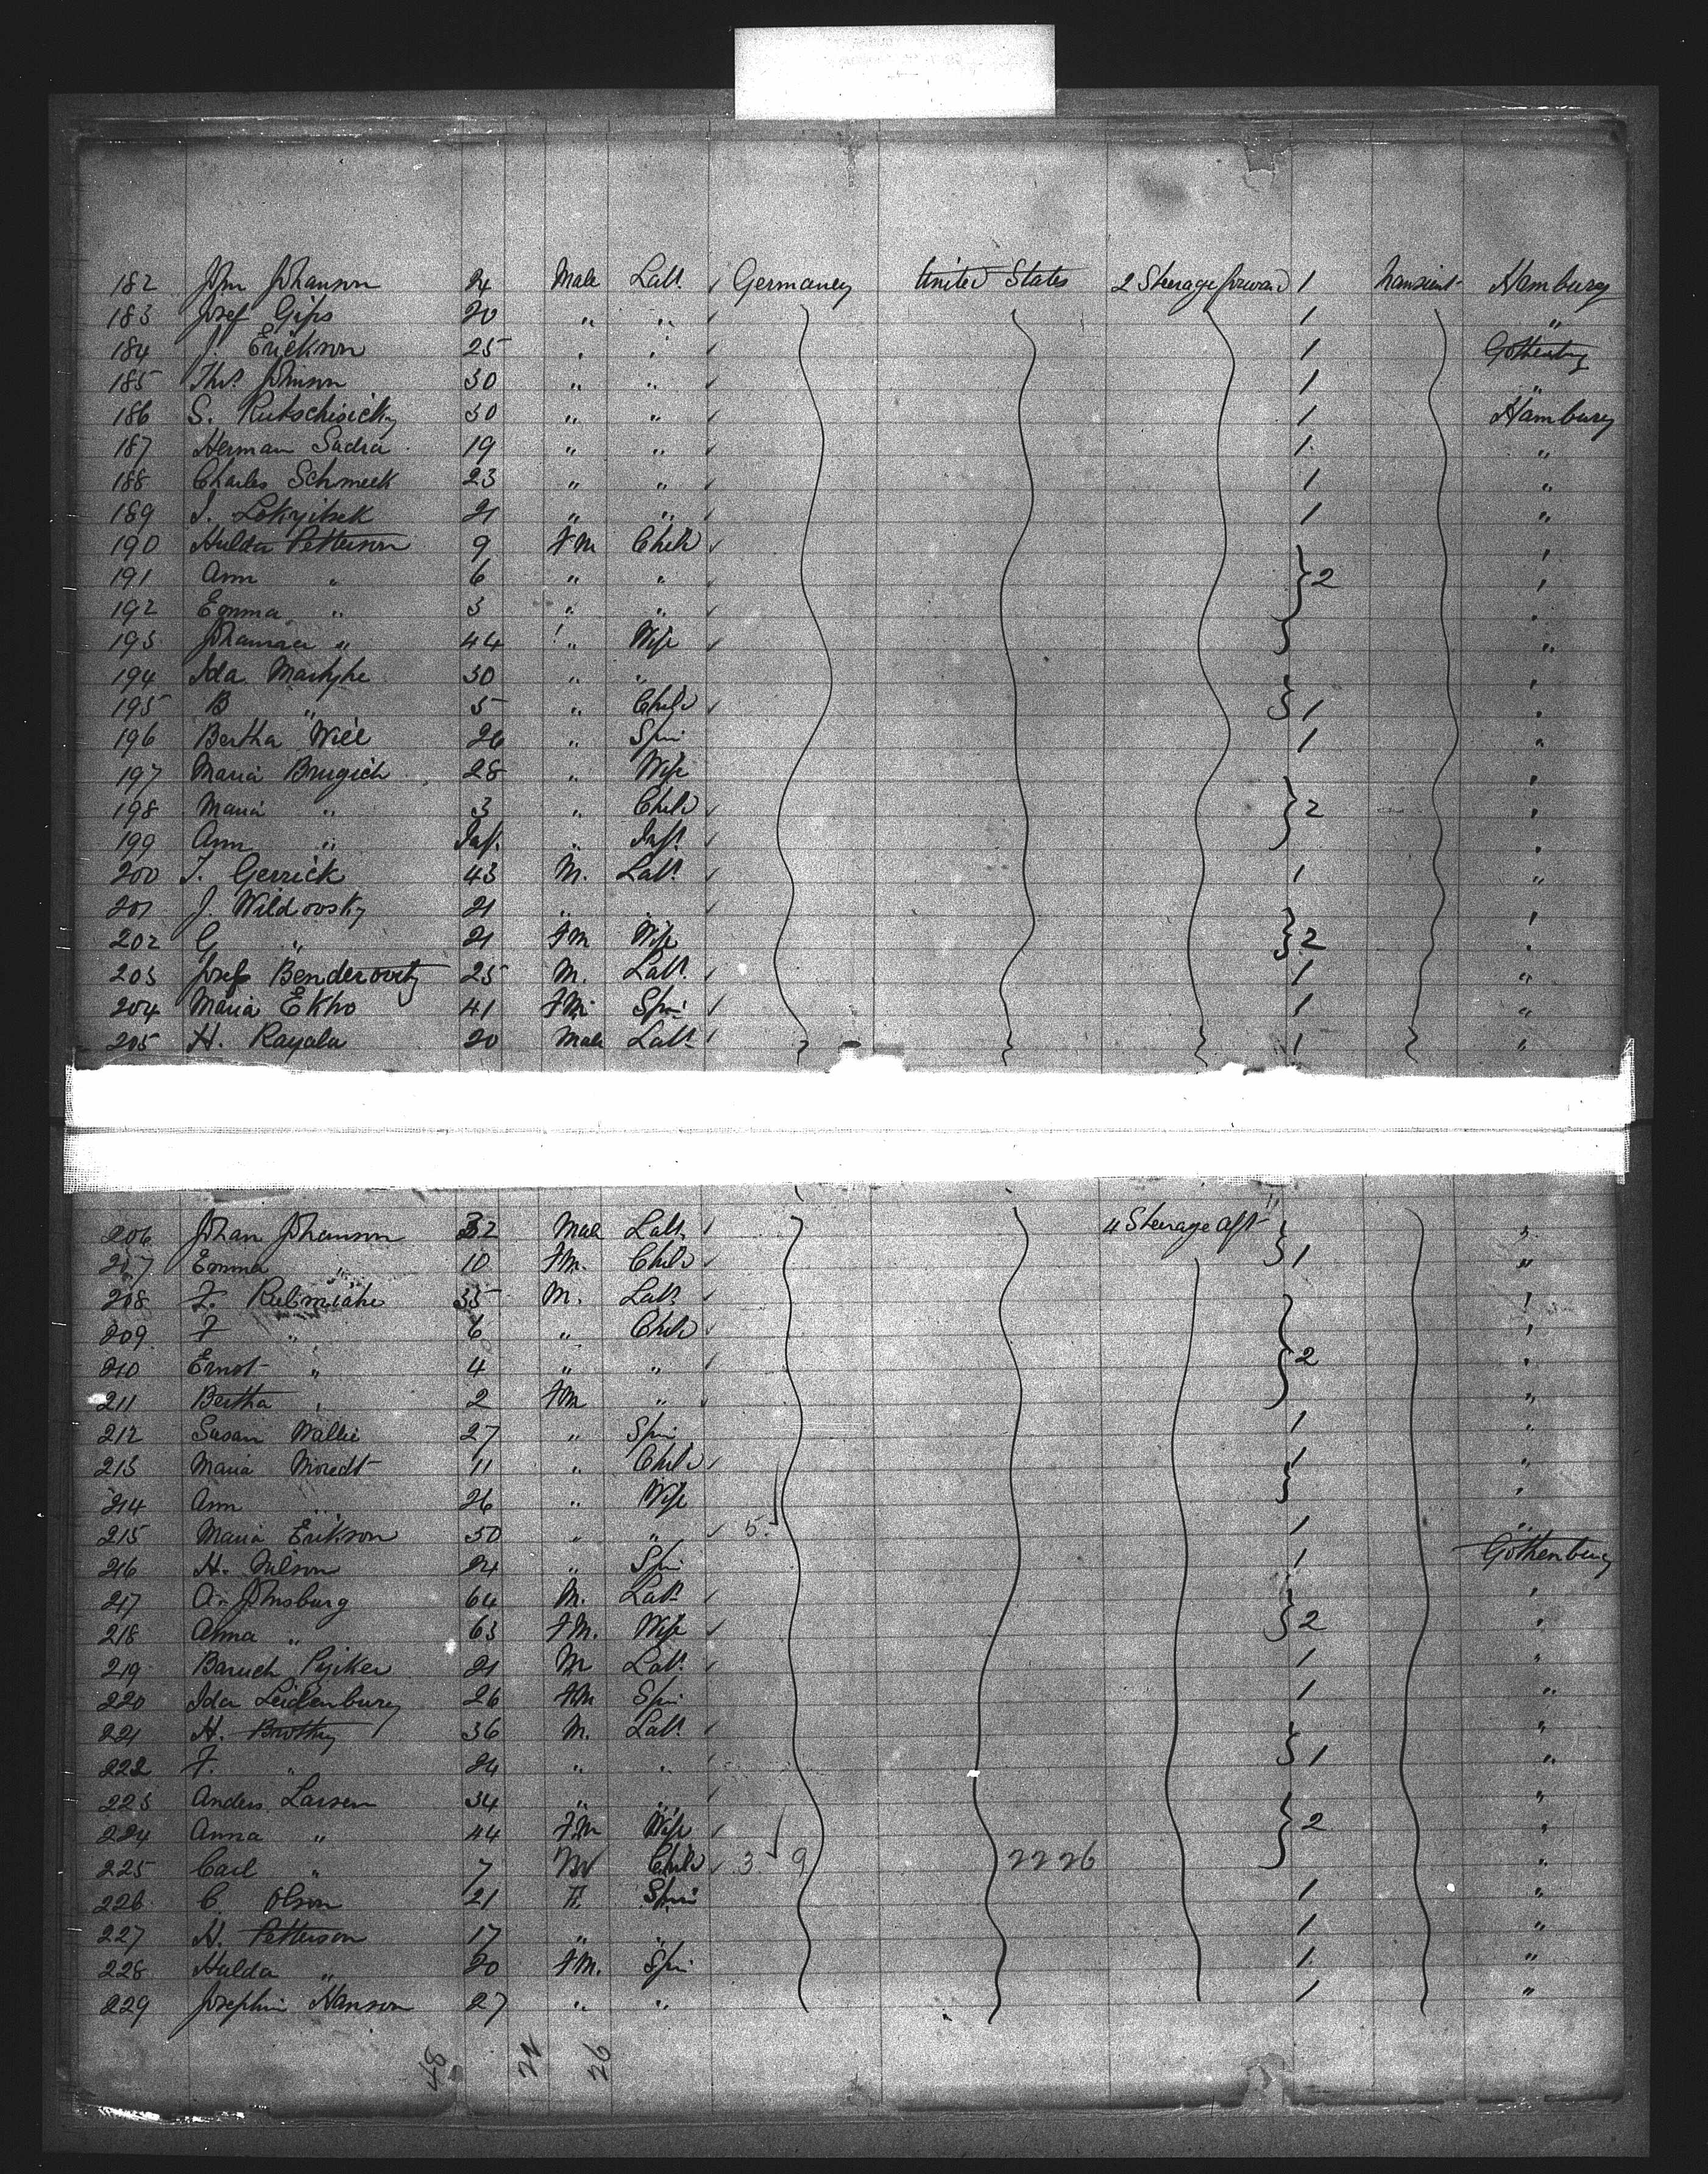 182 John Johanson 24 Male Labr. ✓ Germaney United States 2 Steerage forward 1 transient Hamburg
183 Josef Gips 20 " " ✓ 1 "
184 J. Erickson 25 " " ✓ 1 Gothenbg
185 Thos Johnson 30 " " ✓ 1 "
186 S. 30 " " ✓ 1 Hamburg
187 Herman Sadra 19 " " ✓ 1 "
188 Charles Schmeck 23 " " ✓ 1 "
189 21 " " ✓ 1 "
190 Hulda Petterson 9 Fm Child ✓ "
191 Ann " 6 " " ✓ } 2 "
192 Emma " 3 " " ✓ "
193 Johanna " 44 " Wife ✓ "
194 Ida 30 " " "
195 B " 5 " Child ✓ } 1 "
196 Bertha Will 26 " Spin 1 "
197 Maria Brugich 28 " Wife "
198 Maria " 3 " Child ✓ } 2 "
199 Ann " Inf. " Inft. ✓ "
200 J. Gerrick 43 M. Labr. ✓ 1 "
201 J. Wildovsky 21 " " ✓ "
202 G " 21 Fm Wife } 2 "
203 Josef Benderovitz 25 M. Labr. ✓ 1 "
204 Maria Ekho 41 Fm Spin ✓ 1 "
205 H. Rayala 20 Male Labr. ✓ 1 "
206 Johan Johanson 32 Male Labr. ✓ 4 Steerage aft "
207 Emma " 10 Fm. Child ✓ } 1 "
208 F. 35 M. Labr. ✓ "
209 F " 6 " Child ✓ "
210 Ernst " 4 " " ✓ } 2 "
211 Bertha " 2 Fm " ✓ "
212 Susan Wallie 27 " Spin 1 "
213 Maria Moredt 11 " Child ✓ 1 "
214 Ann " 26 " Wife } "
215 Maria Erikson 50 " " ✓ 5 1 "
216 H. Nilson 24 " Spin 1 Gothenburg
217 A. Johnsburg 64 M. Labr. ✓ "
218 Anna " 63 Fm. Wife ✓ } 2 "
219 Baruch Pyiker 21 M Labr. ✓ 1 "
220 Ida Leidenburg 26 Fm Spin 1 "
221 H. Brothy 36 M. Labr. ✓ "
222 F. " 24 " " ✓ } 1 "
223 Anders Larsen 34 " " ✓ "
224 Anna " 44 Fm Wife ✓ } 2 "
225 Carl " 7 M Child ✓ 3 9 22 26 "
226 C. Olson 21 F. Spin 1 "
227 H. Petterson 17 " " 1 "
228 Hulda " 20 Fm. Spin 1 "
229 Josephin Hanson 27 " " 1 "
48 22 26